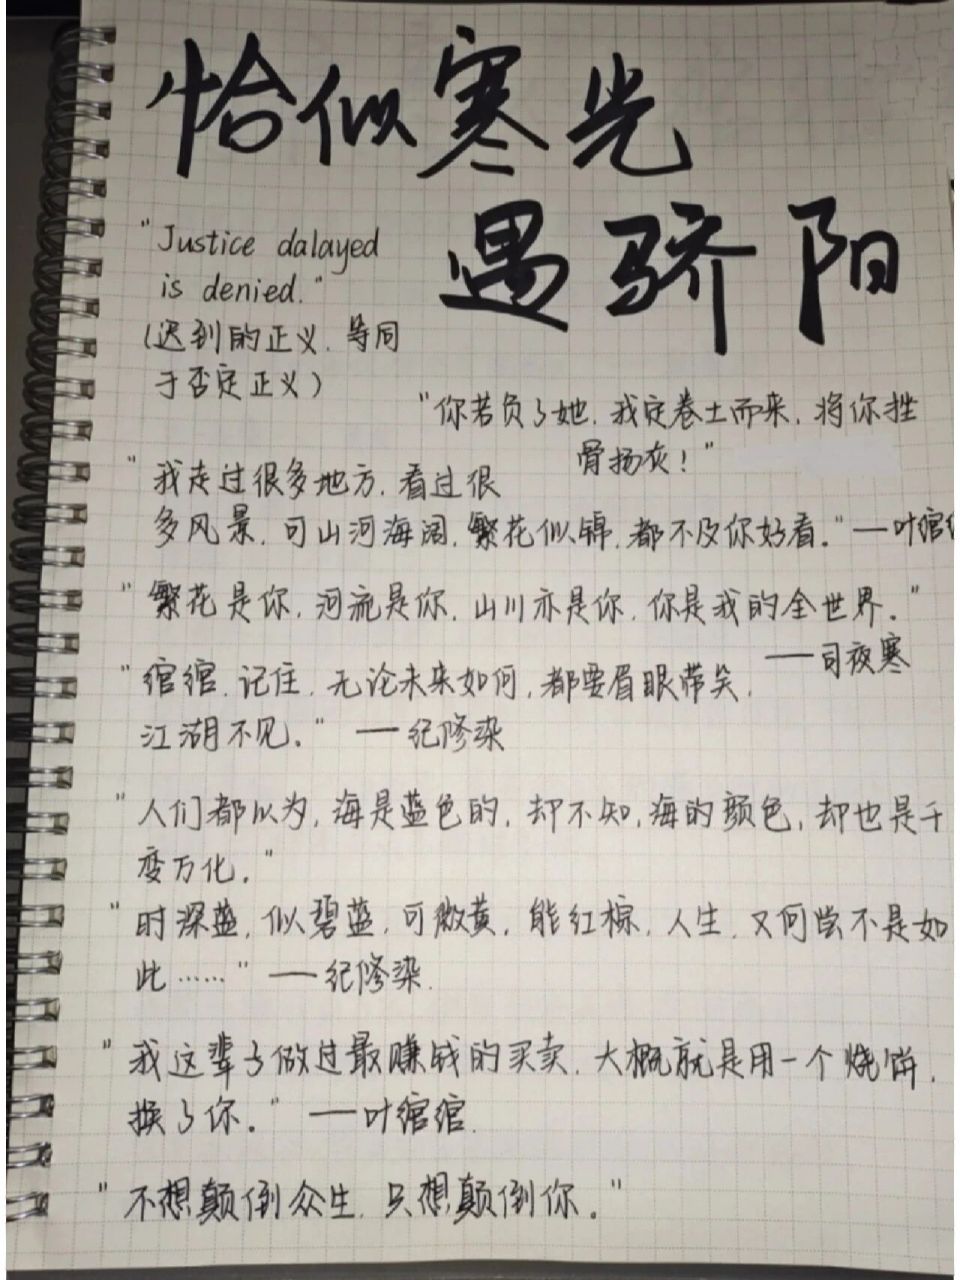 恰似寒光
遇骄阳
"Justice dalayed
is denied."
(迟到的正义,等同
于否定正义)
"你若负了她,我定卷土而来,将你挫
骨扬灰!"
"我走过很多地方,看过很
多风景,可山河海阔,繁花似锦,都不及你好看。"——叶绾
"繁花是你,河流是你,山川亦是你,你是我的全世界。"
——司夜寒
"绾绾,记住,无论未来如何,都要眉眼带笑,
江湖不见。"——纪修染
"人们都以为,海是蓝色的,却不知,海的颜色,却也是千
变万化。"
"时深蓝,似碧蓝,可微黄,能红棕,人生,又何尝不是如
此……"——纪修染.
"我这辈子做过最赚钱的买卖,大概就是用一个烧饼,
换了你。"——叶绾绾.
"不想颠倒众生,只想颠倒你。"